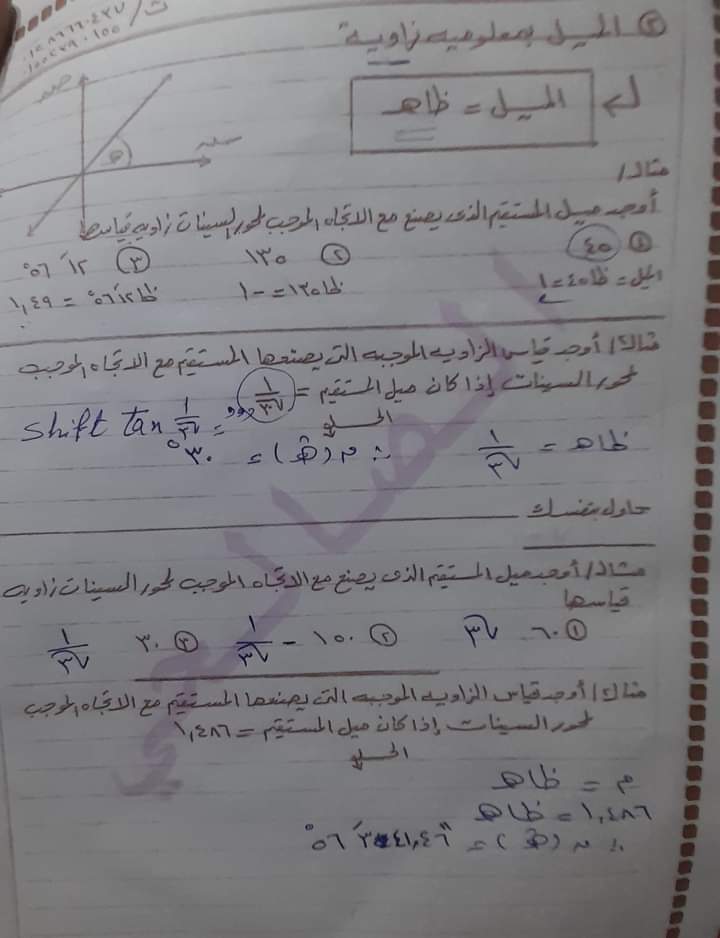 ت/ ٠١٢٨٦٦٦٠٤٢٧
٠١٠٠٤٢٨٠١٠٠
② الميل بمعلوميه زاوية
الميل = ظاهـ
صص
سس
هـ
مثال/
أوجد ميل المستقيم الذى يصنع مع الاتجاه الموجب لمحور السينات زاويه قياسها
① ٤٥ ② ١٣٥ ③ ١٢ َ ٥٦ ْ
الميل = ظا ٤٥ = ١ ظا ١٣٥ = -١ ظا ١٢ َ ٥٦ ْ = ١,٤٩
مثال/ أوجد قياس الزاويه الموجبه التى يصنعها المستقيم مع الاتجاه الموجب
لمحور السينات إذا كان ميل المستقيم = ١/√٣
الحل
shift tan ١/√٣ =
ظاهـ = ١/√٣ ∴ ن (هـ) = ٣٠ ْ
حاول بنفسك
مثال/ أوجد ميل المستقيم الذى يصنع مع الاتجاه الموجب لمحور السينات زاويه
قياسها
① ٦٠ √٣ ② ١٥٠ - ١/√٣ ③ ٣٠ ١/√٣
مثال/ أوجد قياس الزاويه الموجبه التى يصنعها المستقيم مع الاتجاه الموجب
لمحور السينات إذا كان ميل المستقيم = ١,٤٨٦
الحل
م = ظاهـ
١,٤٨٦ = ظاهـ
∴ ن (هـ) = ٤١,٤٦ ً ٣ َ ٥٦ ْ
الصالحي